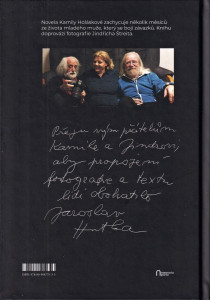 Novela Kamily Holbekové zachycuje několik měsíců
ze života mladého muže, který se bojí zákazků. Knihu
doprovází fotografie Jindřicha Štreita.
Přeju svým přátelům
Kamile a Jindrovi,
aby propojení
fotografie a textu
lidi obohatilo
Jaroslav
Hutka